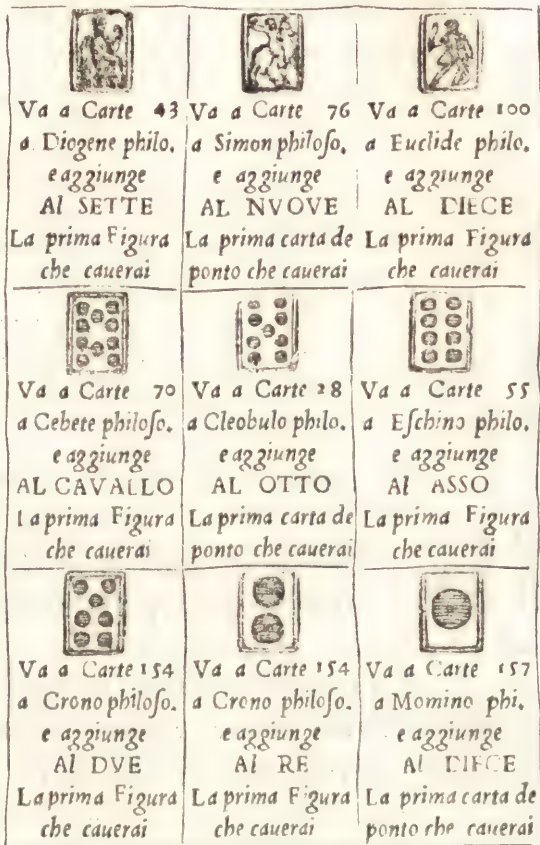 Va a Carte 43
a Diogene philo.
e aggiunge
Al SETTE
La prima Figura
che cauerai
Va a Carte 76
a Simon philoſo.
e aggiunge
AL NVOVE
La prima carta de
ponto che cauerai
Va a Carte 100
a Euclide philo.
e aggiunge
AL DIECE
La prima Figura
che cauerai
Va a Carte 70
a Cebete philoſo.
e aggiunge
AL CAVALLO
La prima Figura
che cauerai
Va a Carte 28
a Cleobulo philo.
e aggiunge
AL OTTO
La prima carta de
ponto che cauerai
Va a Carte 55
a Eſchino philo.
e aggiunge
Al ASSO
La prima Figura
che cauerai
Va a Carte 154
a Crono philoſo.
e aggiunge
Al DVE
La prima Figura
che cauerai
Va a Carte 154
a Crono philoſo.
e aggiunge
Al RE
La prima Figura
che cauerai
Va a Carte 157
a Momino phi.
e aggiunge
Al DIECE
La prima carta de
ponto che cauerai